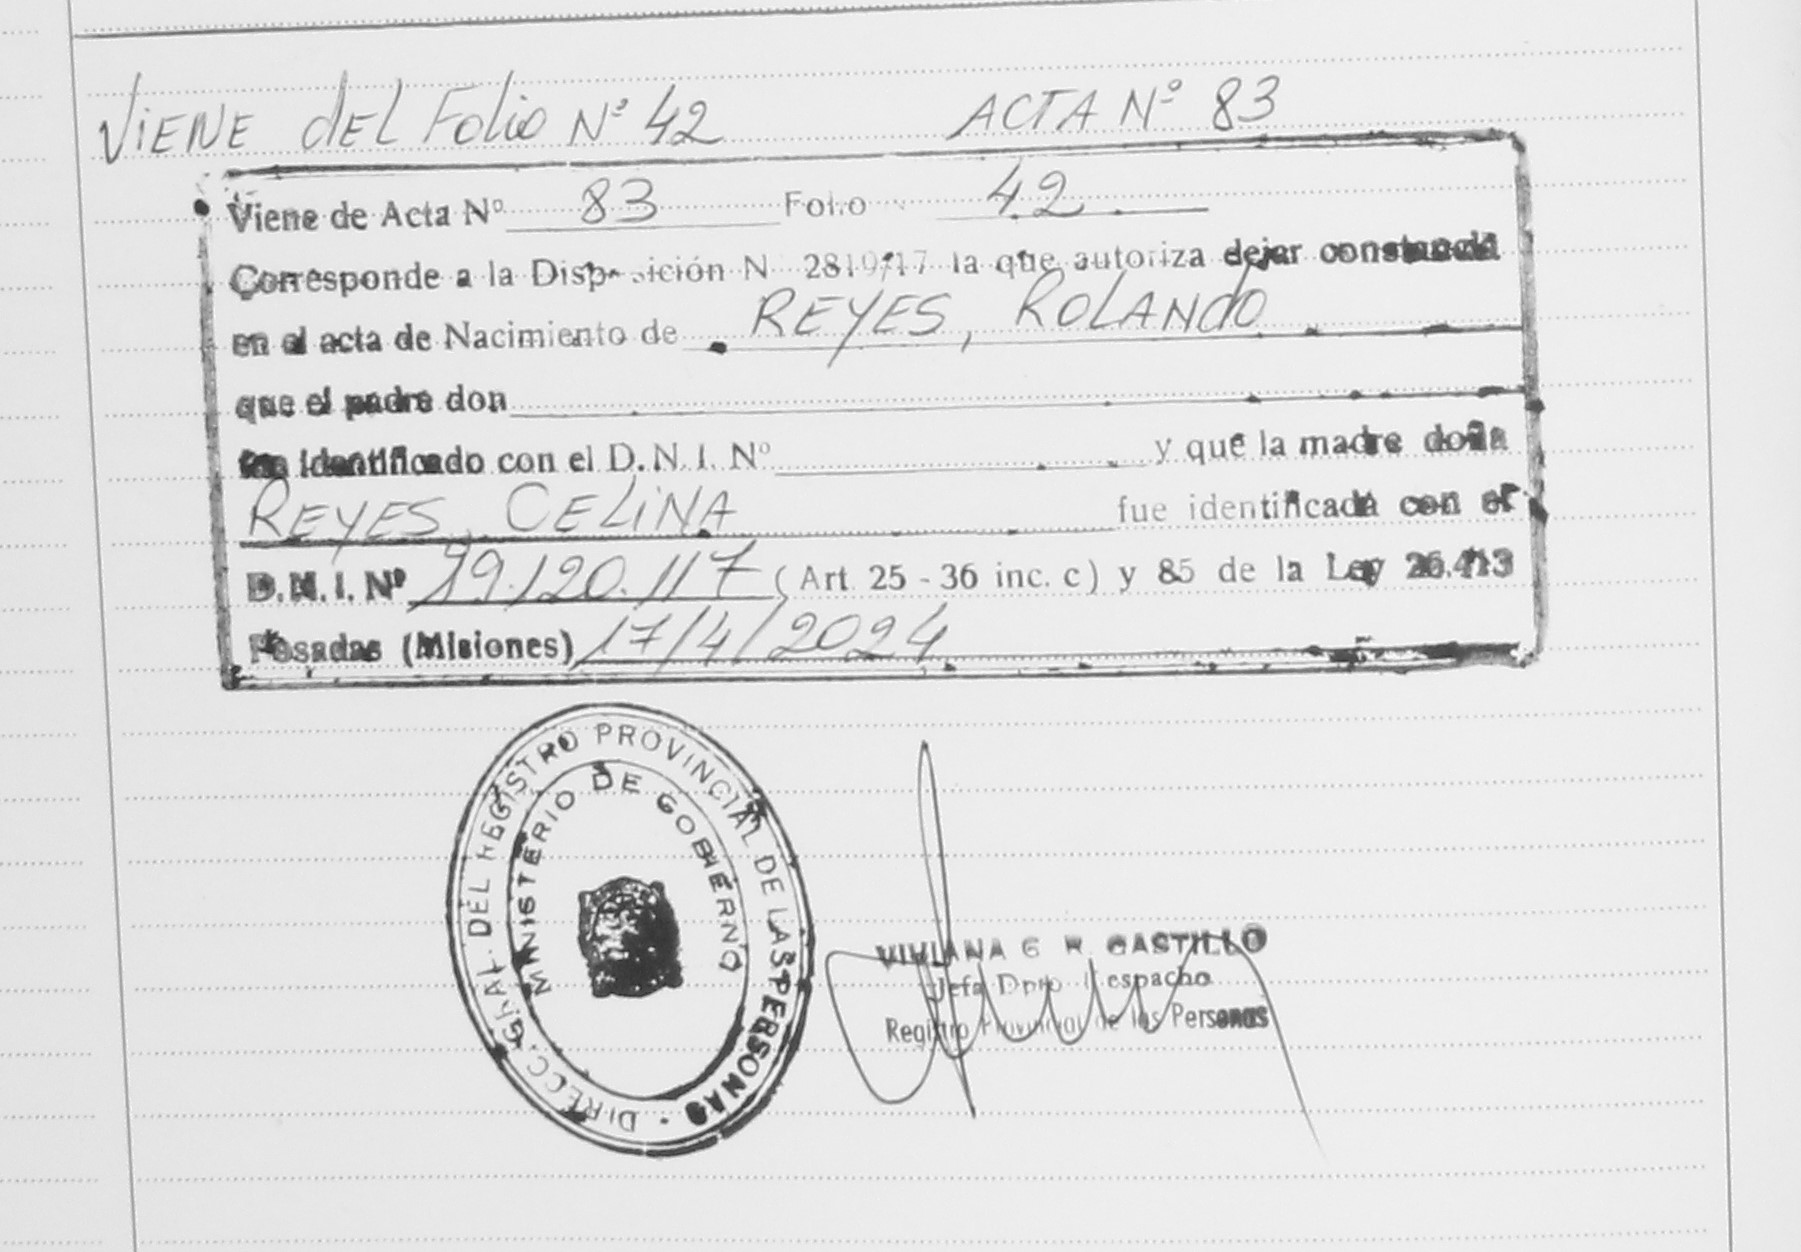 VIENE DEL FOLIO Nº 42 ACTA Nº 83
Viene de Acta Nº 83 Folio 42
Corresponde a la Disposición N 2819/17 la que autoriza dejar constancia
en el acta de Nacimiento de REYES, ROLANDO
que el padre don
fue identificado con el D.N.I. Nº y que la madre doña
REYES, CELINA fue identificada con el
D.N.I. Nº 29.120.117 (Art. 25 - 36 inc. c) y 85 de la Ley 26.413
Posadas (Misiones) 17/4/2024
DIRECC. GRAL. DEL REGISTRO PROVINCIAL DE LAS PERSONAS
MINISTERIO DE GOBIERNO
VIVIANA G R. CASTILLO
Jefa Dpto Despacho
Registro Provincial de las Personas